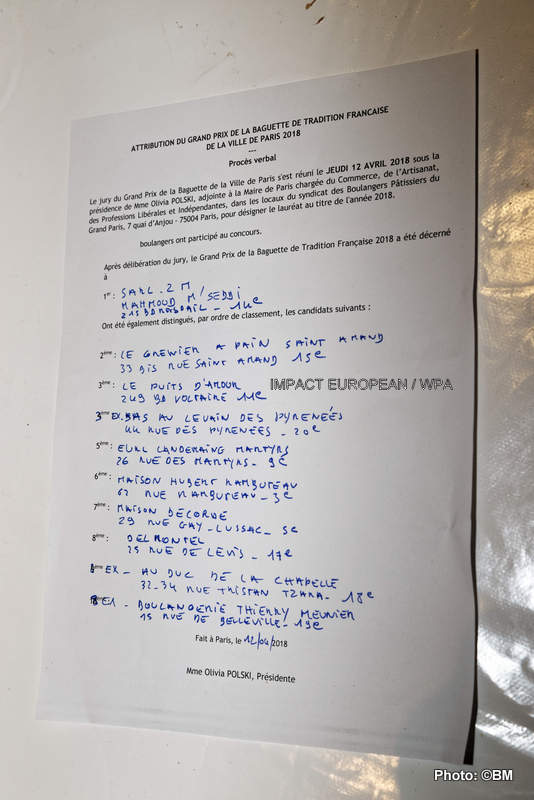 ATTRIBUTION DU GRAND PRIX DE LA BAGUETTE DE TRADITION FRANCAISE
DE LA VILLE DE PARIS 2018
---
Procès verbal
Le jury du Grand Prix de la Baguette de la Ville de Paris s'est réuni le JEUDI 12 AVRIL 2018 sous la
présidence de Mme Olivia POLSKI, adjointe à la Maire de Paris chargée du Commerce, de l'Artisanat,
des Professions Libérales et Indépendantes, dans les locaux du syndicat des Boulangers Pâtissiers du
Grand Paris, 7 quai d'Anjou - 75004 Paris, pour désigner le lauréat au titre de l'année 2018.
boulangers ont participé au concours.
Après délibération du jury, le Grand Prix de la Baguette de Tradition Française 2018 a été décerné
à
1er : SARL. 2 M
MAHMOUD M'SEDDI
215 BD RASPAIL - 14e
Ont été également distingués, par ordre de classement, les candidats suivants :
2ème : LE GRENIER A PAIN SAINT AMAND
33 BIS RUE SAINT AMAND 15e
3ème : LE PUITS D'AMOUR
249 BD VOLTAIRE 11e
IMPACT EUROPEAN / WPA
3ème EX. BAS AU LEVAIN DES PYRENEÉS
44 RUE DES PYRENÉES - 20e
5ème : EURL LANDEMAINE MARTYRS
26 RUE DES MARTYRS - 9e
6ème : MAISON HUBERT RAMBUTEAU
62 RUE RAMBUTEAU - 3e
7ème : MAISON DECORDE
29 RUE GAY-LUSSAC - 5e
8ème : DELMONTEL
25 RUE DE LEVIS - 17e
8ème EX - AU DUC DE LA CHAPELLE
32-34 RUE TRISTAN TZARA - 18e
8 EX - BOULANGERIE THIERRY MEUNIER
15 RUE DE BELLEVILLE - 19e
Fait à Paris, le 12/04/2018
Mme Olivia POLSKI, Présidente
Photo: ©BM